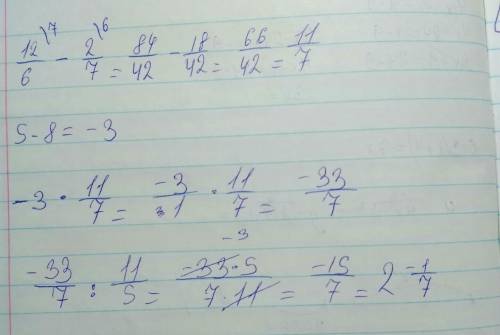 12/6 \7 - 2/7 \6 = 84/42 - 18/42 = 66/42 = 11/7
5-8 = -3
-3 · 11/7 = -3/1 · 11/7 = -33/7
-3
-33/7 : 11/5 = -33·5/7·11 = -15/7 = 2 -1/7